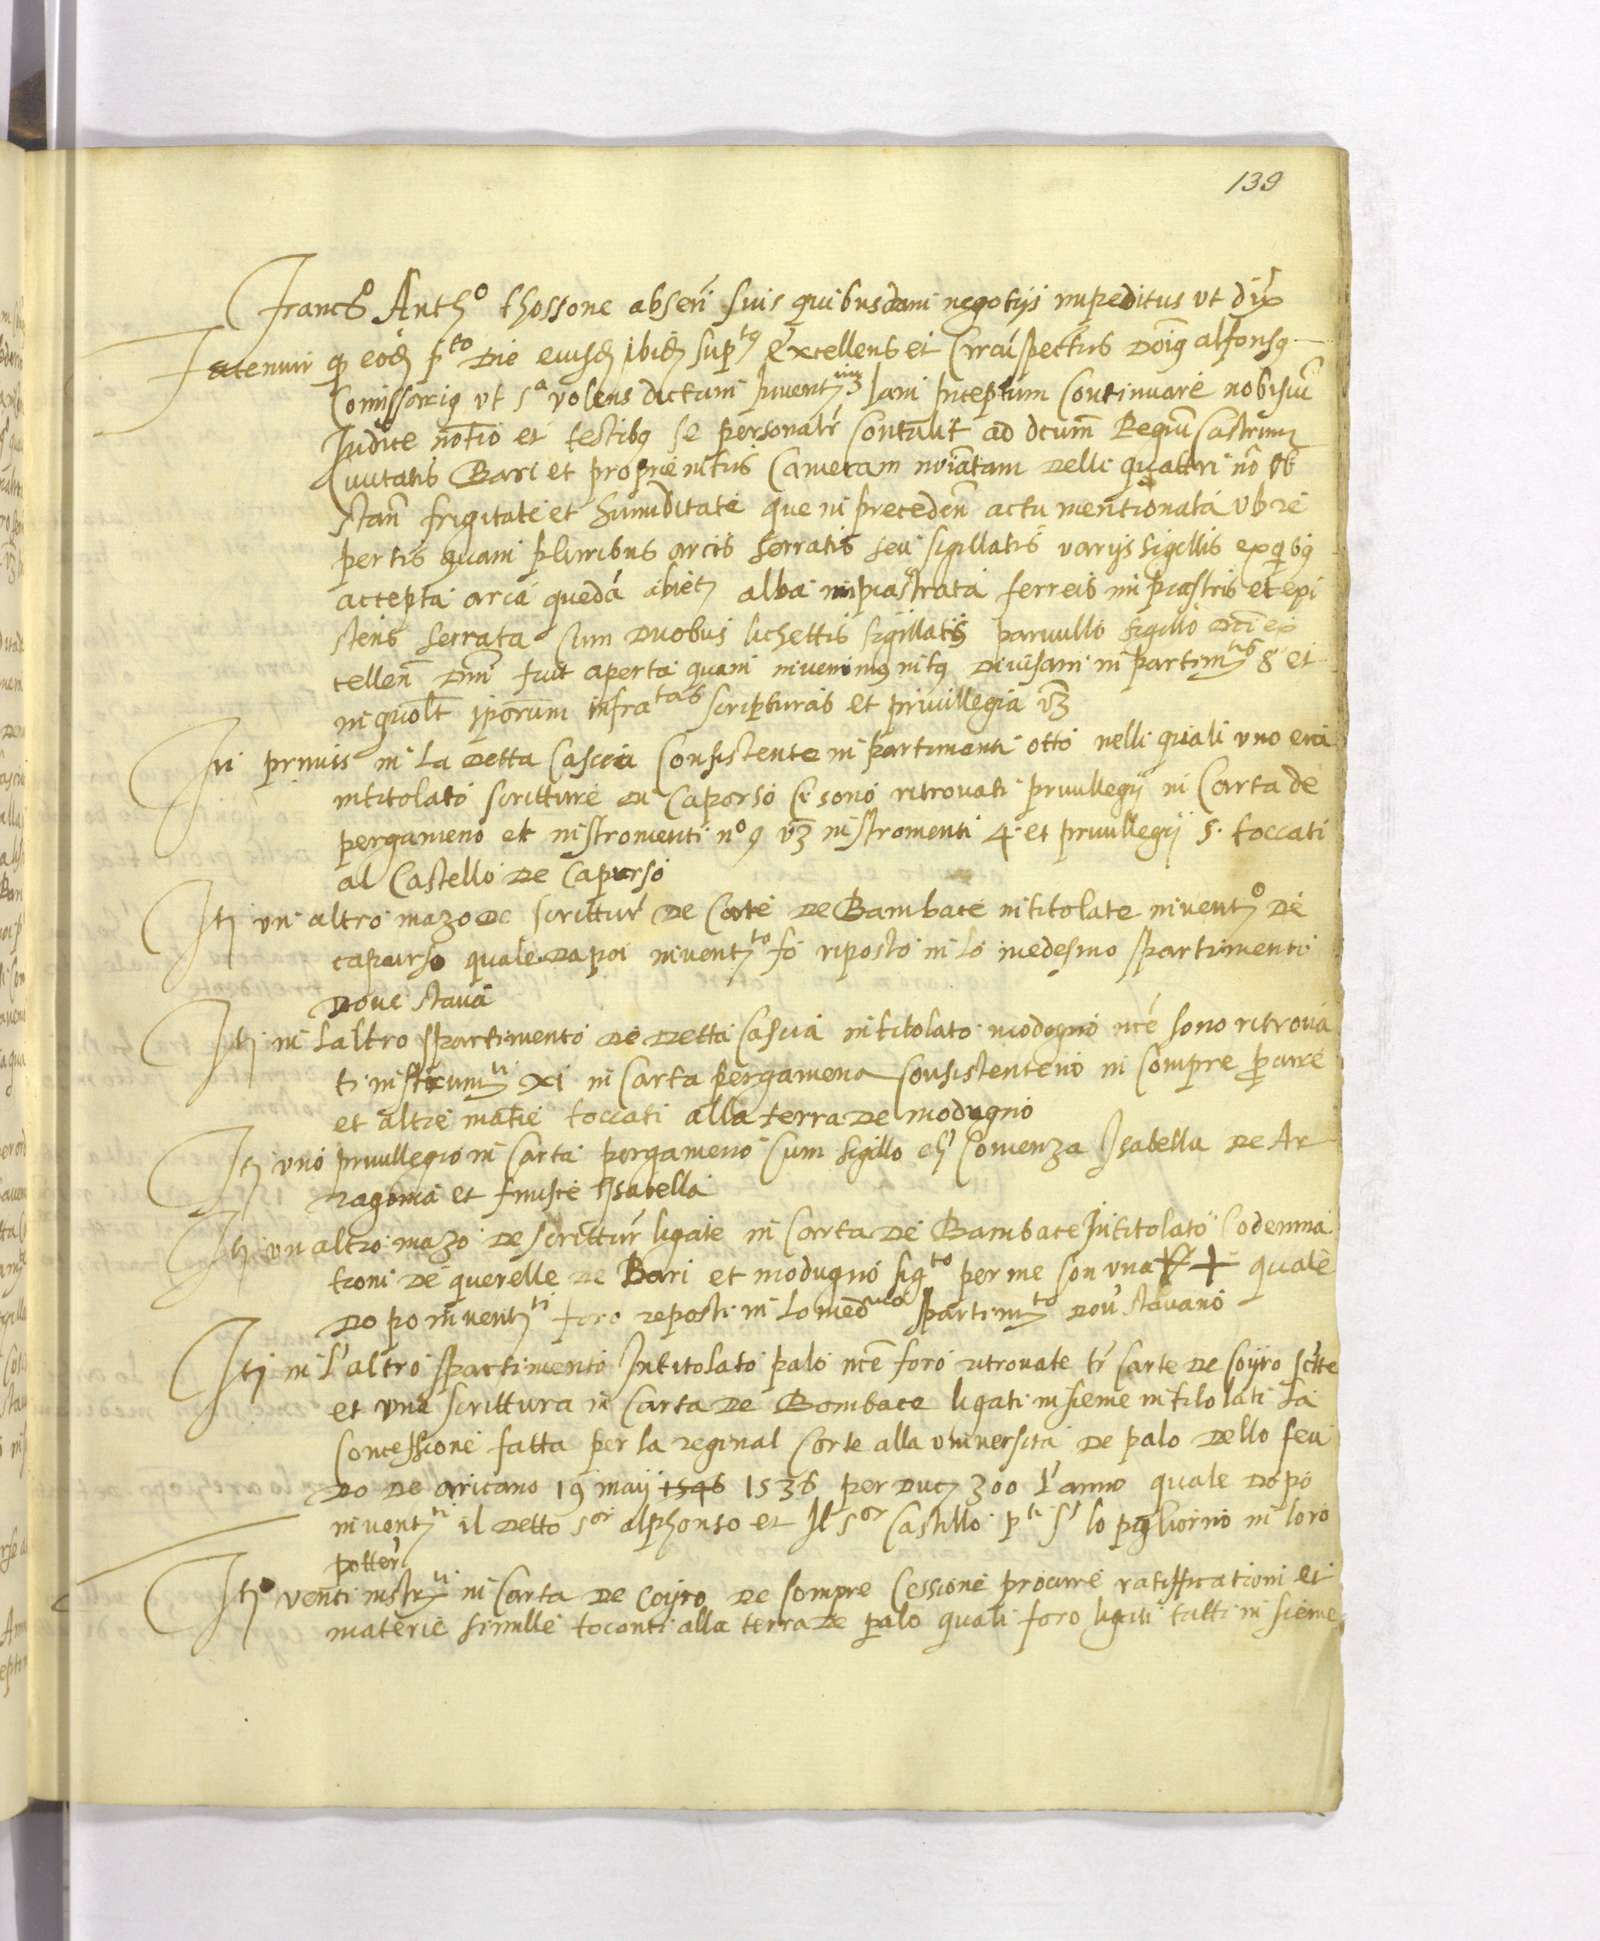 139
Franc.o Anth.o thossone absen suis quibusdam negotijs impeditus ut dix
Fatemur q eod p.to Die eiusd ibid sup.tus Excellens et Circuspectus Doms alfonsus
Comissarius ut s.a volens dictam Iam Inceptum Continuare nobiscu
Iudice notio et testibus se personalr Contulit ad dcum Regiu Castrum
Civitatis Bari et proprie intus Cameram noiatam delli quattri no ob
stan frigitate et humiditate que in preceden actu mentionata ub re
pertis quam pluribus arcis serratis seu sigillatis varijs sigillis ex qbus
accepta arca queda abiet alba inpiastrata ferreis inpiastris et epi
stens serrata Cum duobus lichettis sigillatis parvullo sigillo dci ex
cellen Dni fuit aperta quam invenimus intus divisam in partim.tis 8 et
in quolt iporum infra.tas scripturas et privillegia vz
In primis in La detta Cascia Consistente in partimenti otto nelli quali uno era
intitolato scritture di Caporso Ce sono ritrovati privillegij in Carta de
pergameno et instromenti n.o 9 vz instromenti 4 et privillegij 5. toccati
al Castello de Capurso
It un altro mazo de scrittur de Carte de Bambace intitolate invent.o de
capurso quale dapoi invent.to fo riposto in lo medesmo spartimenti
dove stava
It in Laltro spartimento de detta Cascia intitolato modogno nce sono ritrova
ti instrum.ti xi in Carta pergamena Consisteno in Compre
et altre matie toccati alla terra de modugno
It uno privillegio in Carta pergameno Cum sigillo Comenza Isabella de Ar
ragonia et finisce Isabella
It un altro mazo de scrittur ligate in Carta de Bambace Intitolato Codemna
tioni de querelle de Bari et modugno sig.to per me con una + quale
dopo invent.ti foro reposti in lo med.mo spartim.to dov stavano
It in l'altro spartimento Intitolato palo nce foro ritrovate tr Carte de Coyro scrite
et una scrittura in Carta de Bombace ligati insieme intitolati La
Concessione fatta per la reginal Corte alla università de palo dello feu
do de aricano 19 maij 1546 1536 per duc 300 l'anno quale dopo
invent.ti il detto s.or alphonso et Il s.or Castillo p.ti lo pigliorno in loro
potter
It venti instr.ti in Carta de Coyro de Compre Cessione procure ratifficationi et
materie simille toconti alla terra de palo quali foro ligati tutti in sieme